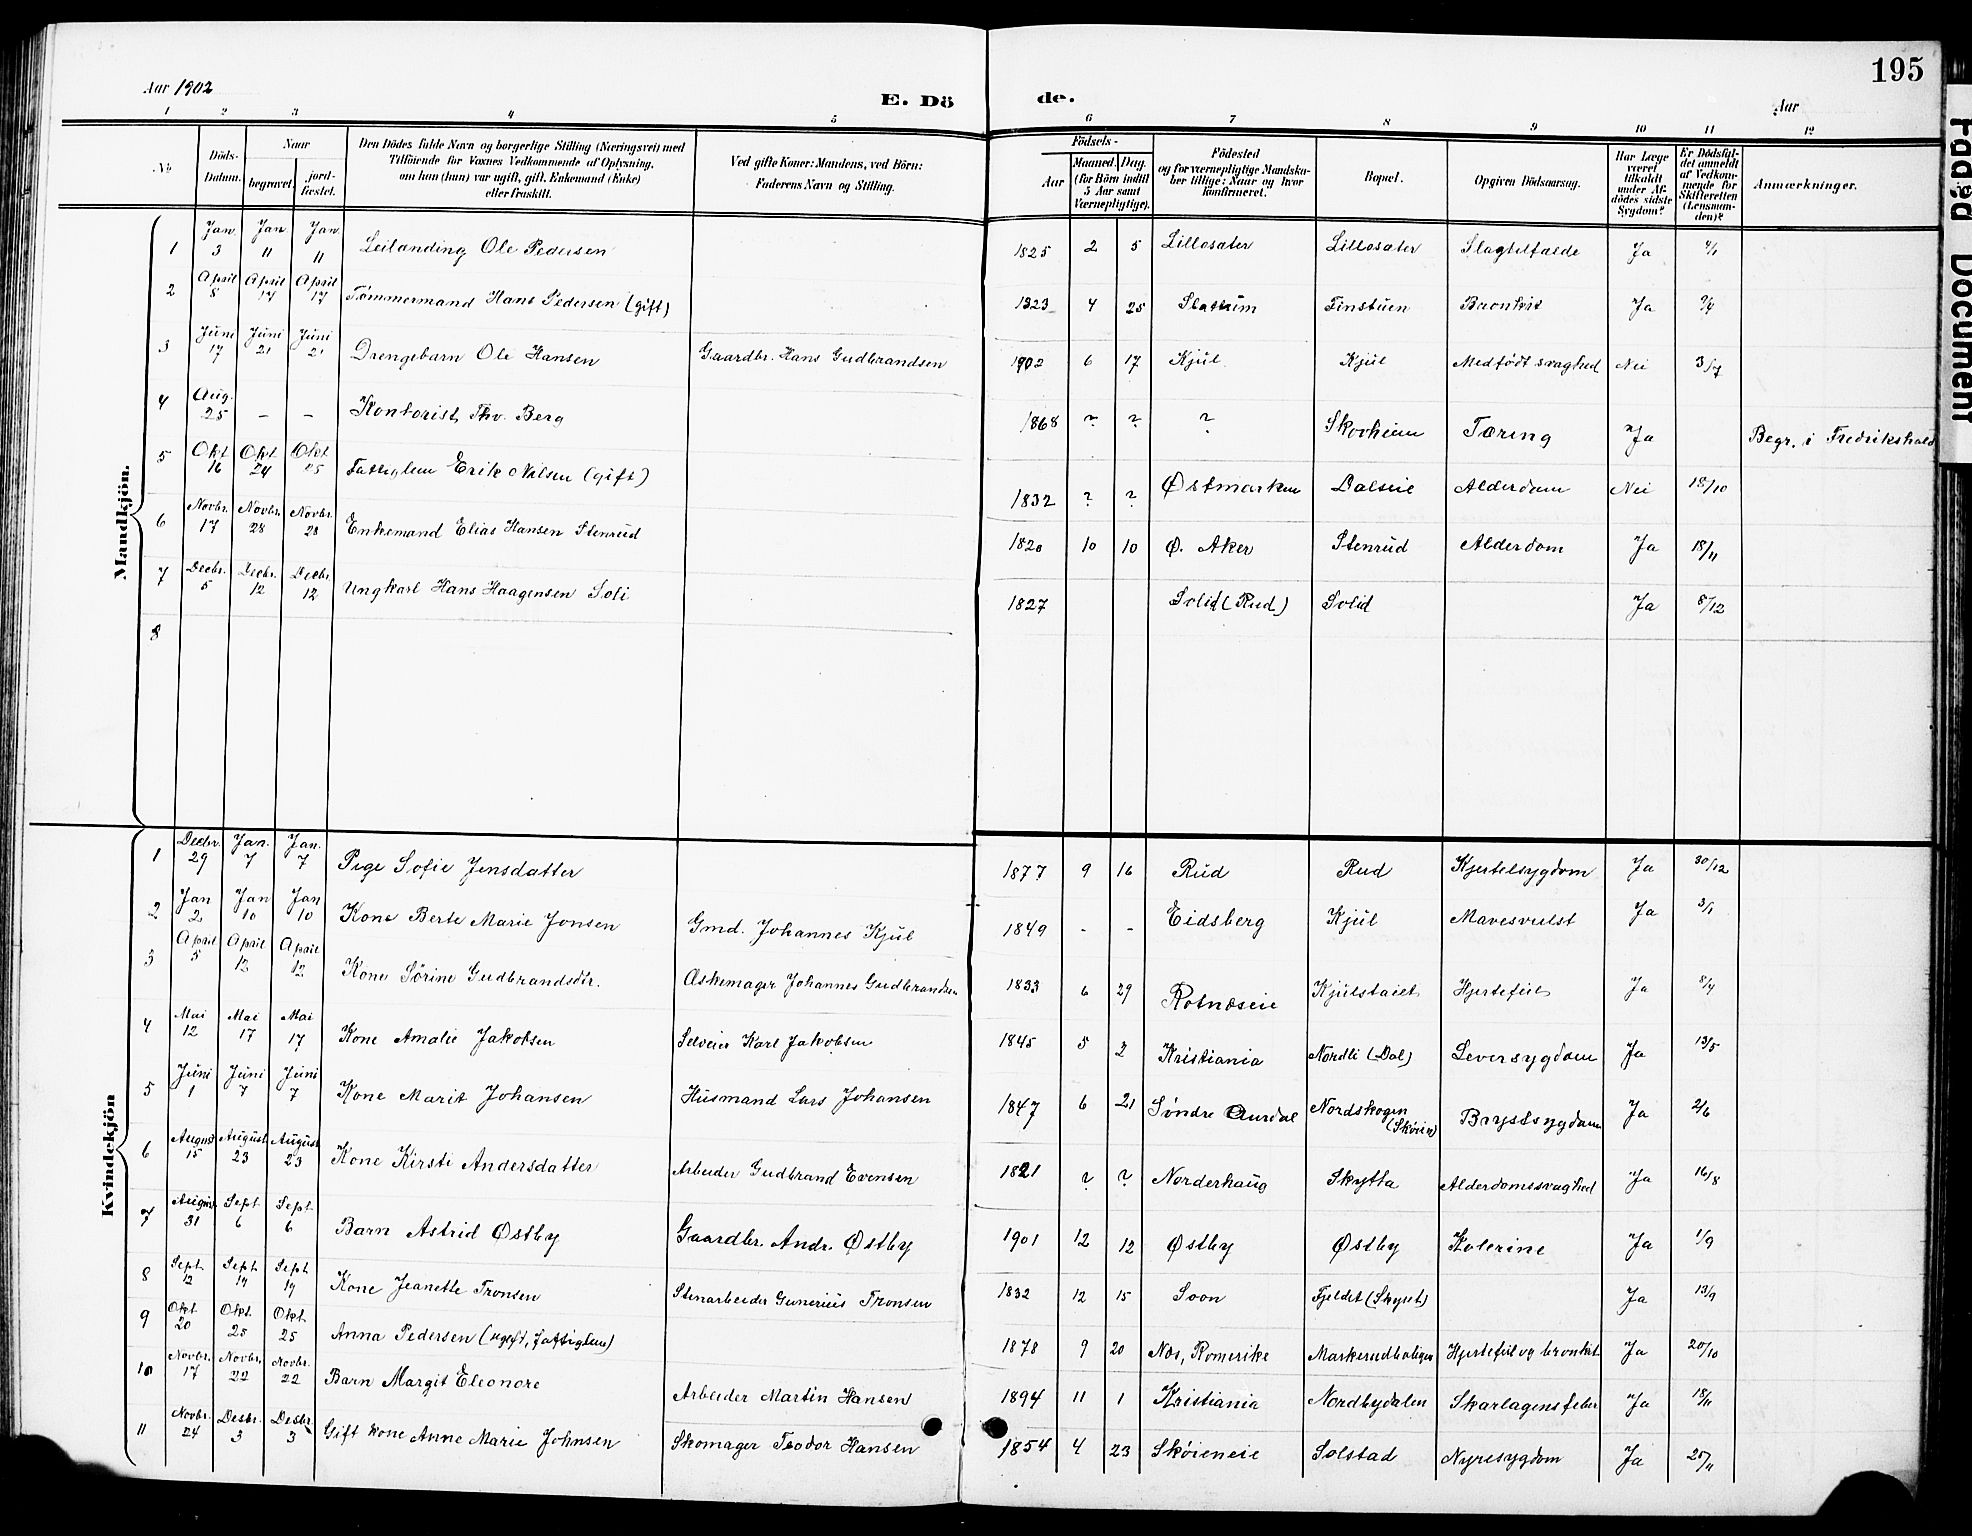 195
Aar 1902
E. Dö
de.
Aar
1 2 3 4 5 6 7 8 9 10 11 12
No
Döds-Datum.
Naar
begravet.
jord-fæstet.
Den Dödes fulde Navn og borgerlige Stilling (Næringsvei) med
Tilföiende for Voxnes Vedkommende af Oplysning,
om han (hun) var ugift, gift, Enkemand (Enke)
eller fraskilt.
Ved gifte Koner: Mandens, ved Börn:
Faderens Navn og Stilling.
Födsels-
Aar
Maaned.
Dag.
(for Börn indtil
5 Aar samt
Værnepligtige).
Födested
og for værnepligtige Mandska-
ber tillige: Naar og hvor
konfirmeret.
Bopæl.
Opgiven Dödsaarsag.
Har Læge
været
tilkaldt
under Af-
dödes sidste
Sygdom?
Er Dödsfal-
det anmeldt
af Vedkom-
mende for
Skifteretten
(Lensman-
den)?
Anmærkninger.
Mandkjön.
1 Jan. 3 Jan 11 Jan. 11 Leilænding Ole Pedersen 1825 2 5 Lillosæter Lillosæter Slagtilfælde Ja 4/1
2 April 8 April 17 April 17 Tømmermand Hans Pedersen (gift) 1823 4 25 Slattum Finstuen Bronkit Ja 9/4
3 Juni 17 Juni 21 Juni 21 Drengebarn Ole Hansen Gaardbr. Hans Gudbrandsen 1902 6 17 Kjul Kjul Medfødt svaghed Nei 3/7
4 Aug. 25 – – Kontorist Thv. Berg 1868 ? ? ? Skovheim Tæring Ja Begr. i Fredrikshald
5 Okt 16 Okt 24 Okt 25 Fattiglem Erik Nilsen (gift) 1832 ? ? Østmarken Dalseie Alderdom Nei 18/10
6 Novbr. 17 Novbr. 28 Novbr. 28 Enkemand Elias Hansen Stenrud 1820 10 10 Ø. Aker Stenrud Alderdom Ja 18/11
7 Decbr. 5 Decbr. 12 Decbr. 12 Ungkarl Hans Haagensen Soli 1827 Solid (Rud) Solid Ja 8/12
8
Kvindekjön
1 Decbr. 29 Jan. 7 Jan. 7 Pige Sofie Jensdatter 1877 9 16 Rud Rud Kjertelsygdom Ja 30/12
2 Jan 2 Jan 10 Jan 10 Kone Berte Marie Jonsen Gmd. Johannes Kjul 1849 - - Eidsberg Kjul Mavesvulst Ja 3/1
3 April 5 April 12 April 12 Kone Sørine Gudbrandsdtr. Æskemager Johannes Gudbrandsen 1833 6 29 Rotnæseie Kjulstaiet Hjertefeil Ja 8/4
4 Mai 12 Mai 17 Mai 17 Kone Amalie Jakobsen Selveier Karl Jakobsen 1845 5 2 Kristiania Nordli (Dal) Leversygdom Ja 13/5
5 Juni 1 Juni 7 Juni 7 Kone Marit Johansen Husmand Lars Johansen 1847 6 21 Søndre Aurdal Nordskogen (Skøien) Brystsygdom Ja 2/6
6 August 15 August 23 August 23 Kone Kirsti Andersdatter Arbeider Gudbrand Evensen 1821 ? ? Norderhaug Skytta Alderdomssvaghed Ja 16/8
7 August 31 Sept 6 Sept 6 Barn Astrid Østby Gaardbr. Andr. Østby 1901 12 12 Østby Østby Kolerine Ja 1/9
8 Sept. 12 Sept 19 Sept 19 Kone Jeanette Tronsen Stenarbeider Gunerius Tronsen 1832 12 15 Soon Fjeldet (Skyset) Ja 13/9
9 Okt. 20 Okt. 25 Okt 25 Anna Pedersen (ugift, fattiglem) 1878 9 20 Næs, Romerike Markerudboliger Hjertefeil og bronkit Ja 20/10
10 Novbr. 17 Novbr. 22 Novbr. 22 Barn Margit Eleonore Arbeider Martin Hansen 1894 11 1 Kristiania Nordbydalen Skarlagensfeber Ja 18/11
11 Novbr. 24 Desbr. 3 Desbr. 3 Gift kone Anne Marie Johnsen Skomager Teodor Hansen 1854 4 23 Skøieneie Solstad Nyresygdom Ja 25/11
Faded Document